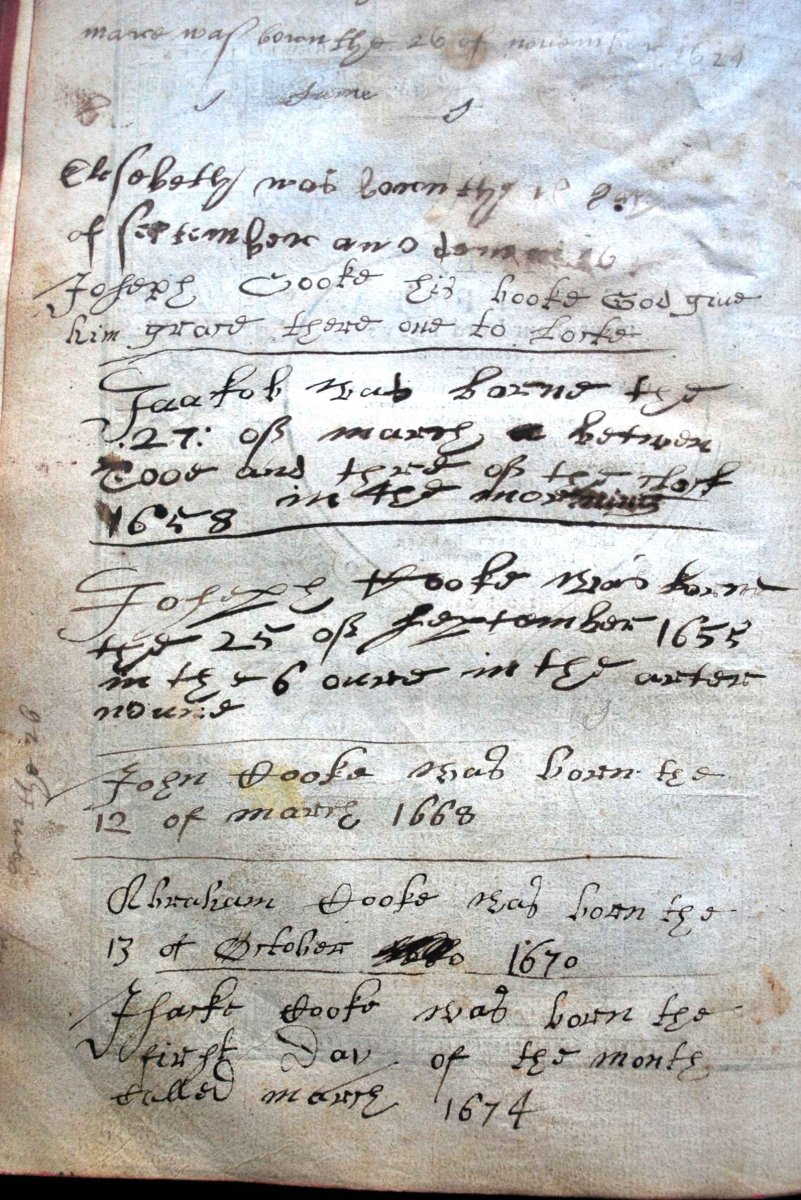 mare was born the 26 of november 1624
June
Elesebeth was born the 18
of september ano domni 16
Joseph Cooke his booke God give
him grace there one to Locke
Jaakob was borne the
.27: of march betwen
Tooe and three of the clock
1658 in the morning
Joseph Cooke was borne
the 25 of september 1655
in the 6 oure in the arter
noune
John Cooke was born the
12 of march 1668
Abraham Cooke was born the
13 of October 1670
Jsacke Cooke was born the
first Day of the month
Called march 1674